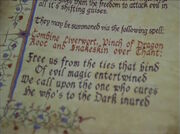 them the freedom to attack evil in
all it's shifting guises.
They may be summoned via the following spell:
Combine Liverwort, Pinch of Dragon
Root and Snakeskin over Chant:
Free us from the ties that bind
Of evil magic entertwined
We call upon the one who cures
He who's to the Dark inured